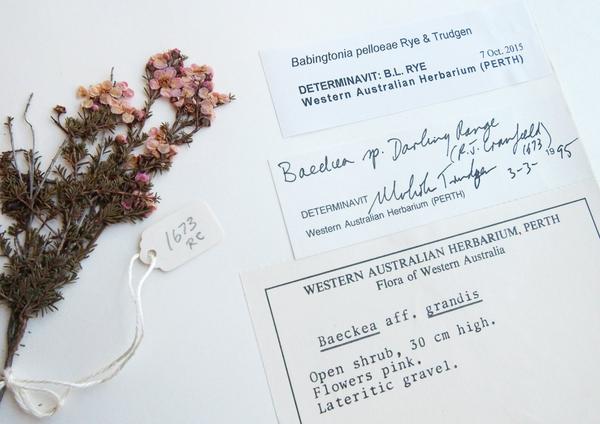 Babingtonia pelloeae Rye & Trudgen
DETERMINAVIT: B.L. RYE 7 Oct. 2015
Western Australian Herbarium (PERTH)
Baeckea sp. Darling Range
(R.J. Cranfield 1673)
DETERMINAVIT Trudgen 3-3-1995
Western Australian Herbarium (PERTH)
1673
RC
WESTERN AUSTRALIAN HERBARIUM, PERTH
Flora of Western Australia
Baeckea aff. grandis
Open shrub, 30 cm high.
Flowers pink.
Lateritic gravel.